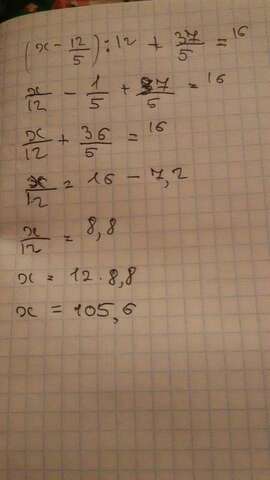 (x - 12/5) : 12 + 37/5 = 16
x/12 - 1/5 + 37/5 = 16
x/12 + 36/5 = 16
x/12 = 16 - 7,2
x/12 = 8,8
x = 12 · 8,8
x = 105,6